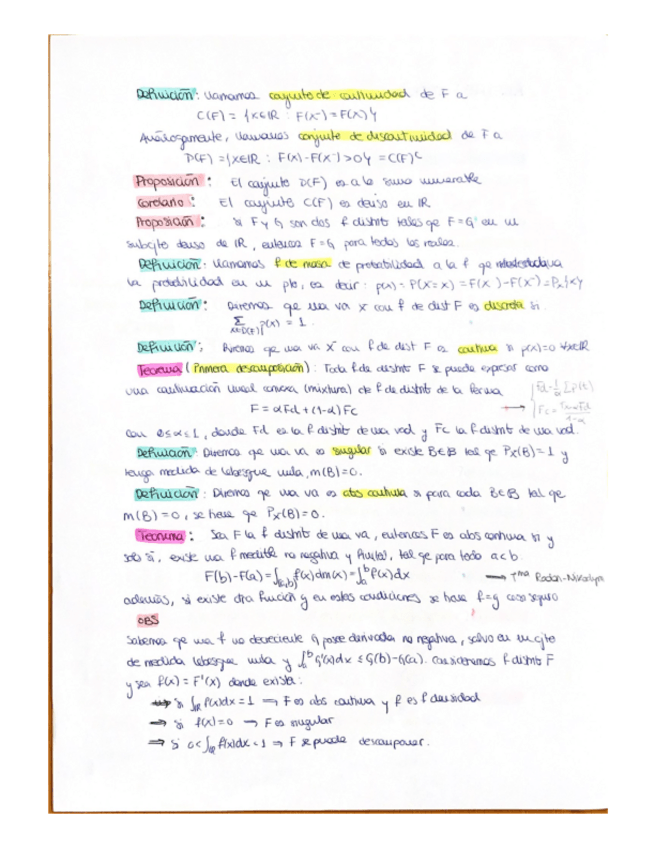 Definición: Llamamos conjunto de continuidad de F a
C(F) = {x∈ℝ : F(x⁻) = F(x)}
Análogamente, llamamos conjunto de discontinuidad de F a
D(F) = {x∈ℝ : F(x) - F(x⁻) > 0} = C(F)ᶜ
Proposición: El conjunto D(F) es a lo sumo numerable
Corolario: El conjunto C(F) es denso en ℝ
Proposición: Si F y G son dos f distrib tales qe F = G en un
subcjto denso de ℝ, entonces F = G para todos los reales.
Definición: Llamamos f de masa de probabilidad a la f qe
la probabilidad en un pto, es decir: p(x) = P(X=x) = F(x) - F(x⁻) = Pₓ{x}
Definición: Diremos qe una va X con f de dist F es discreta si
∑_{x∈D(F)} p(x) = 1.
Definición: Diremos qe una va X con f de dist F es continua si p(x)=0 ∀x∈ℝ
Teorema (Primera descomposición): Toda f de distrib F se puede expresar como
una combinación lineal convexa (mixtura) de f de distrib de la forma
F = αFd + (1-α)Fc
con 0≤α≤1, donde Fd es la f distrib de una vad y Fc la f distrib de una vad.
Definición: Diremos qe una va es singular si existe B∈B tal qe Pₓ(B)=1 y
tenga medida de Lebesgue nula, m(B)=0.
Definición: Diremos qe una va es abs continua si para cada B∈B tal qe
m(B)=0, se tiene qe Pₓ(B)=0.
Teorema: Sea F la f distrib de una va, entonces F es abs continua si y
solo si, existe una f medible no negativa y finita, tal qe para todo a<b.
F(b)-F(a) = ∫_{(a,b)} f(x)dm(x) = ∫ₐᵇ f(x)dx → Tma Radon-Nikodym
además, si existe otra función g en estas condiciones se tiene f=g casi seguro
OBS
Sabemos qe una f no decreciente G posee derivada no negativa, salvo en un cjto
de medida Lebesgue nula y ∫ₐᵇ G'(x)dx ≤ G(b)-G(a). Consideremos f distrib F
y sea f(x) = F'(x) donde exista:
⇒ si ∫_ℝ f(x)dx = 1 ⇒ F es abs continua y f es f densidad
⇒ si f(x)=0 ⇒ F es singular
⇒ si 0<∫_ℝ f(x)dx<1 ⇒ F se puede descomponer.